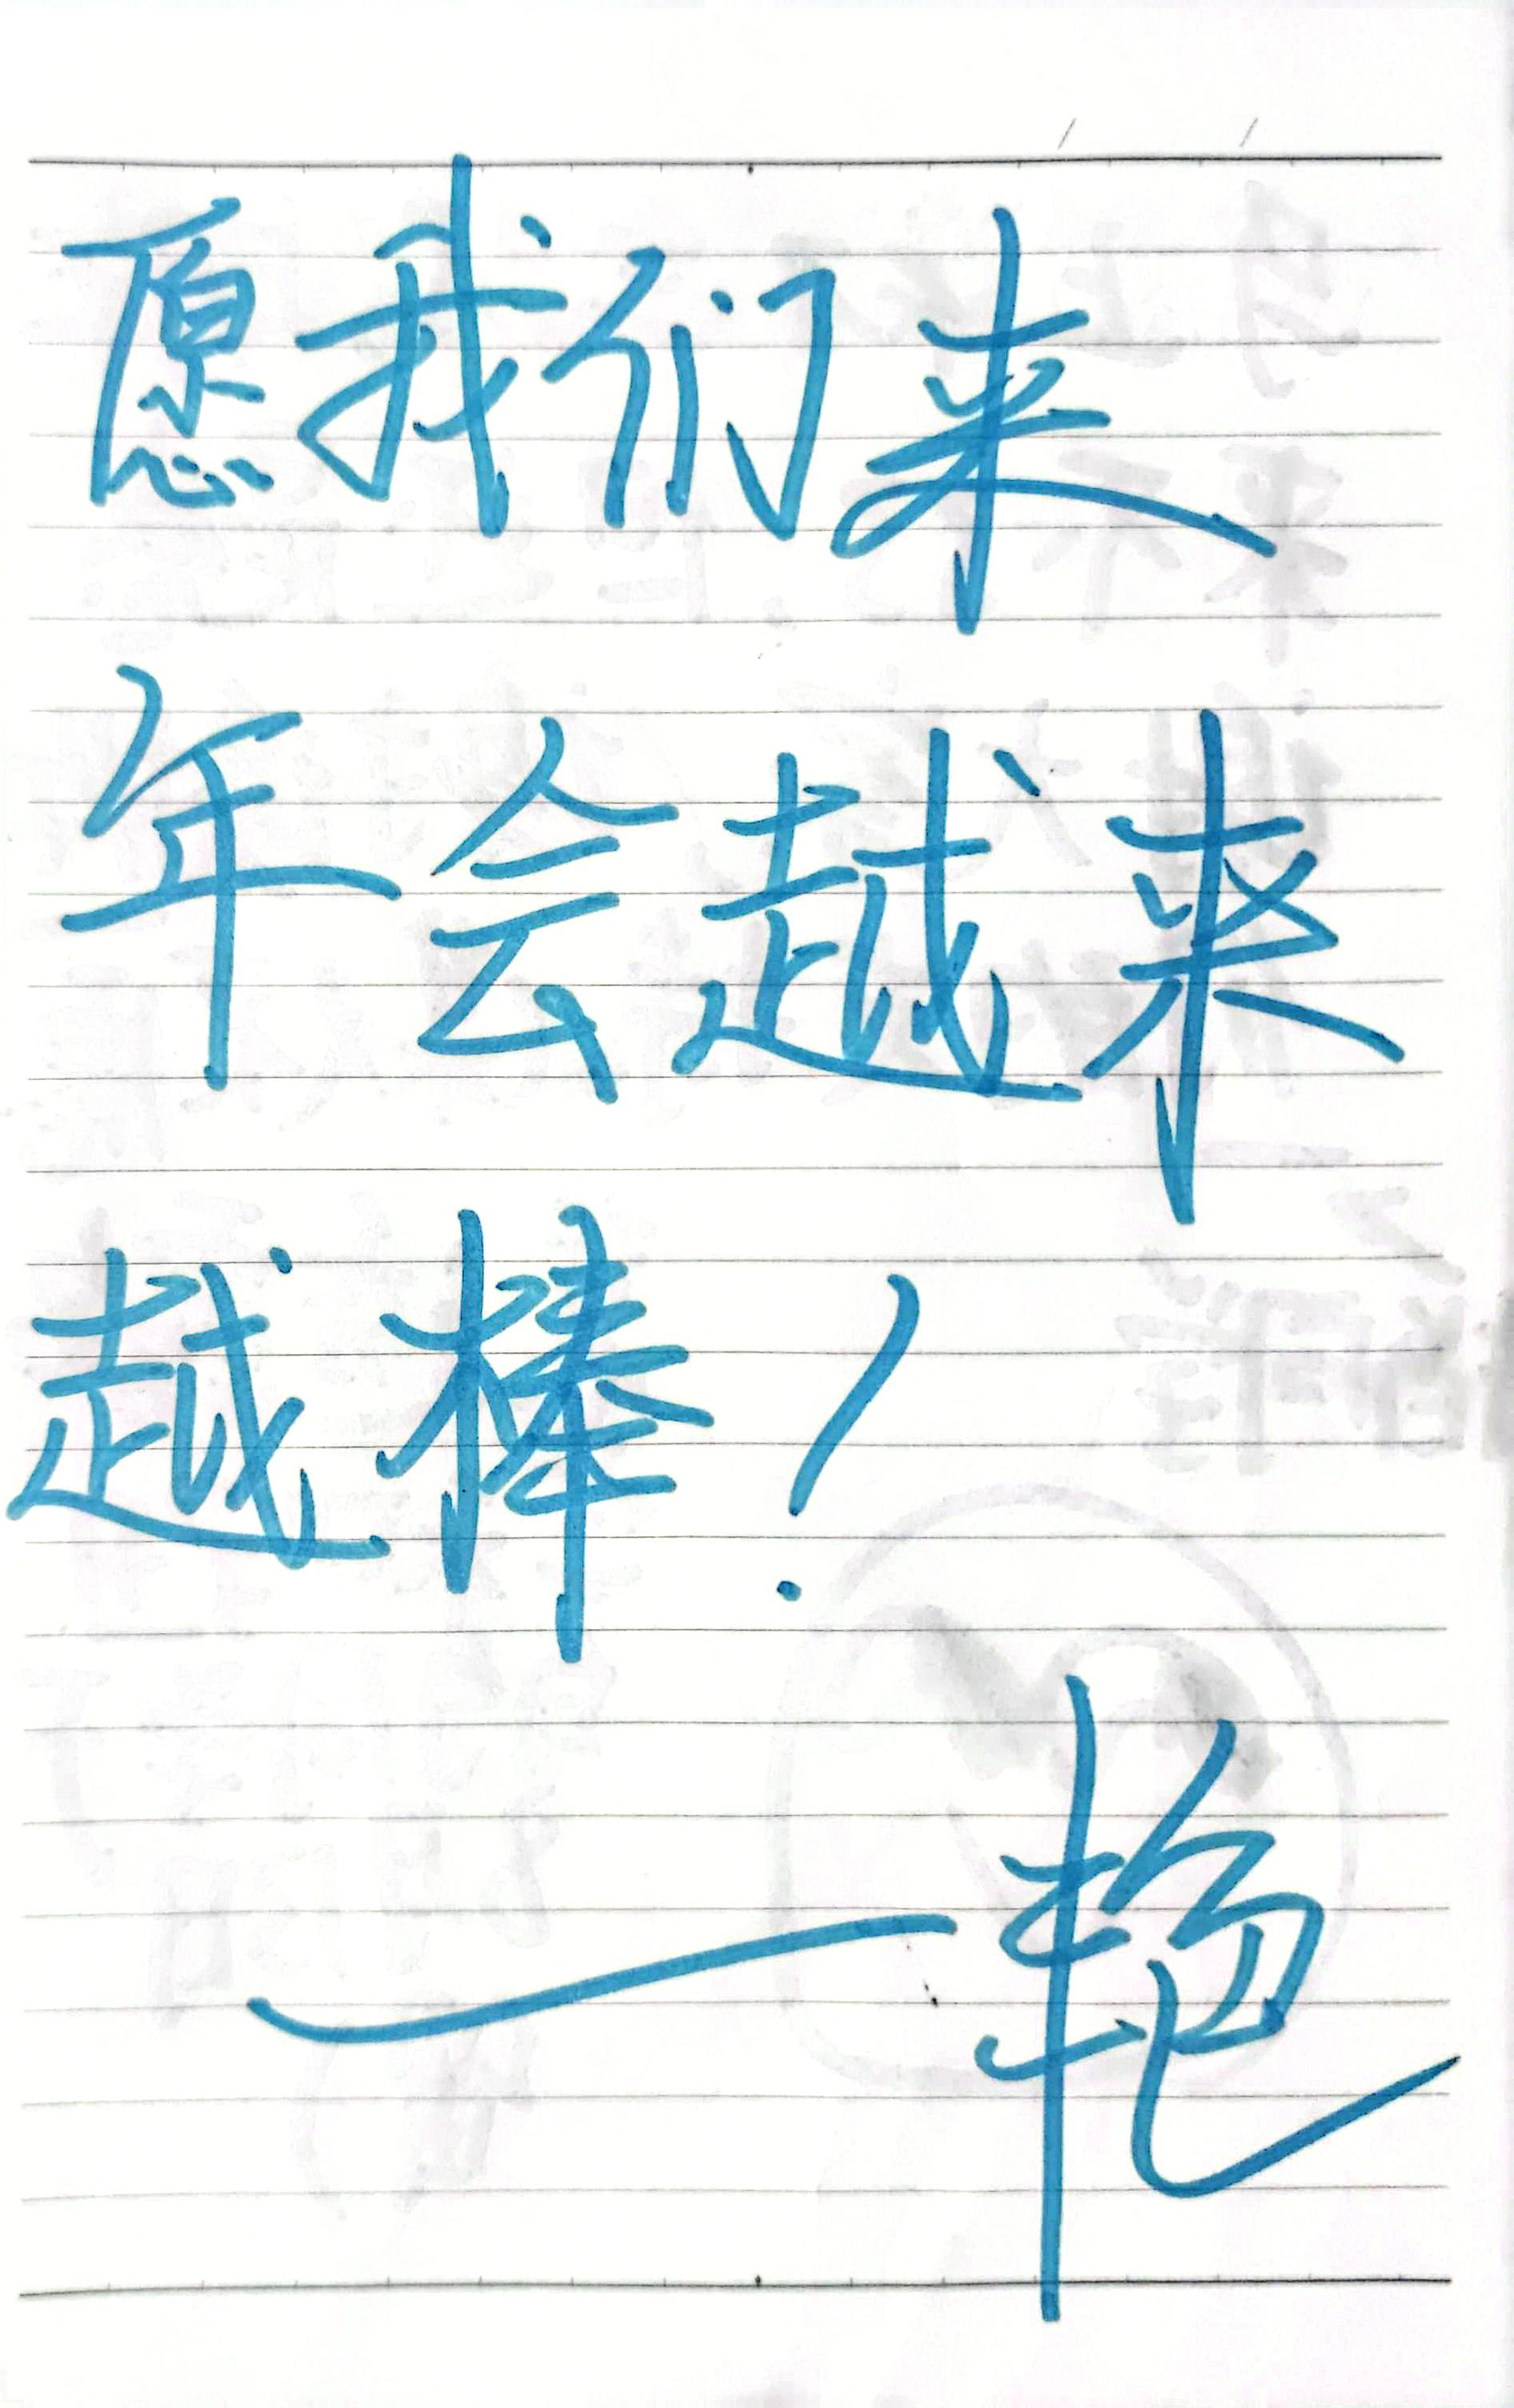 愿我们来
年会越来
越棒！
—艳